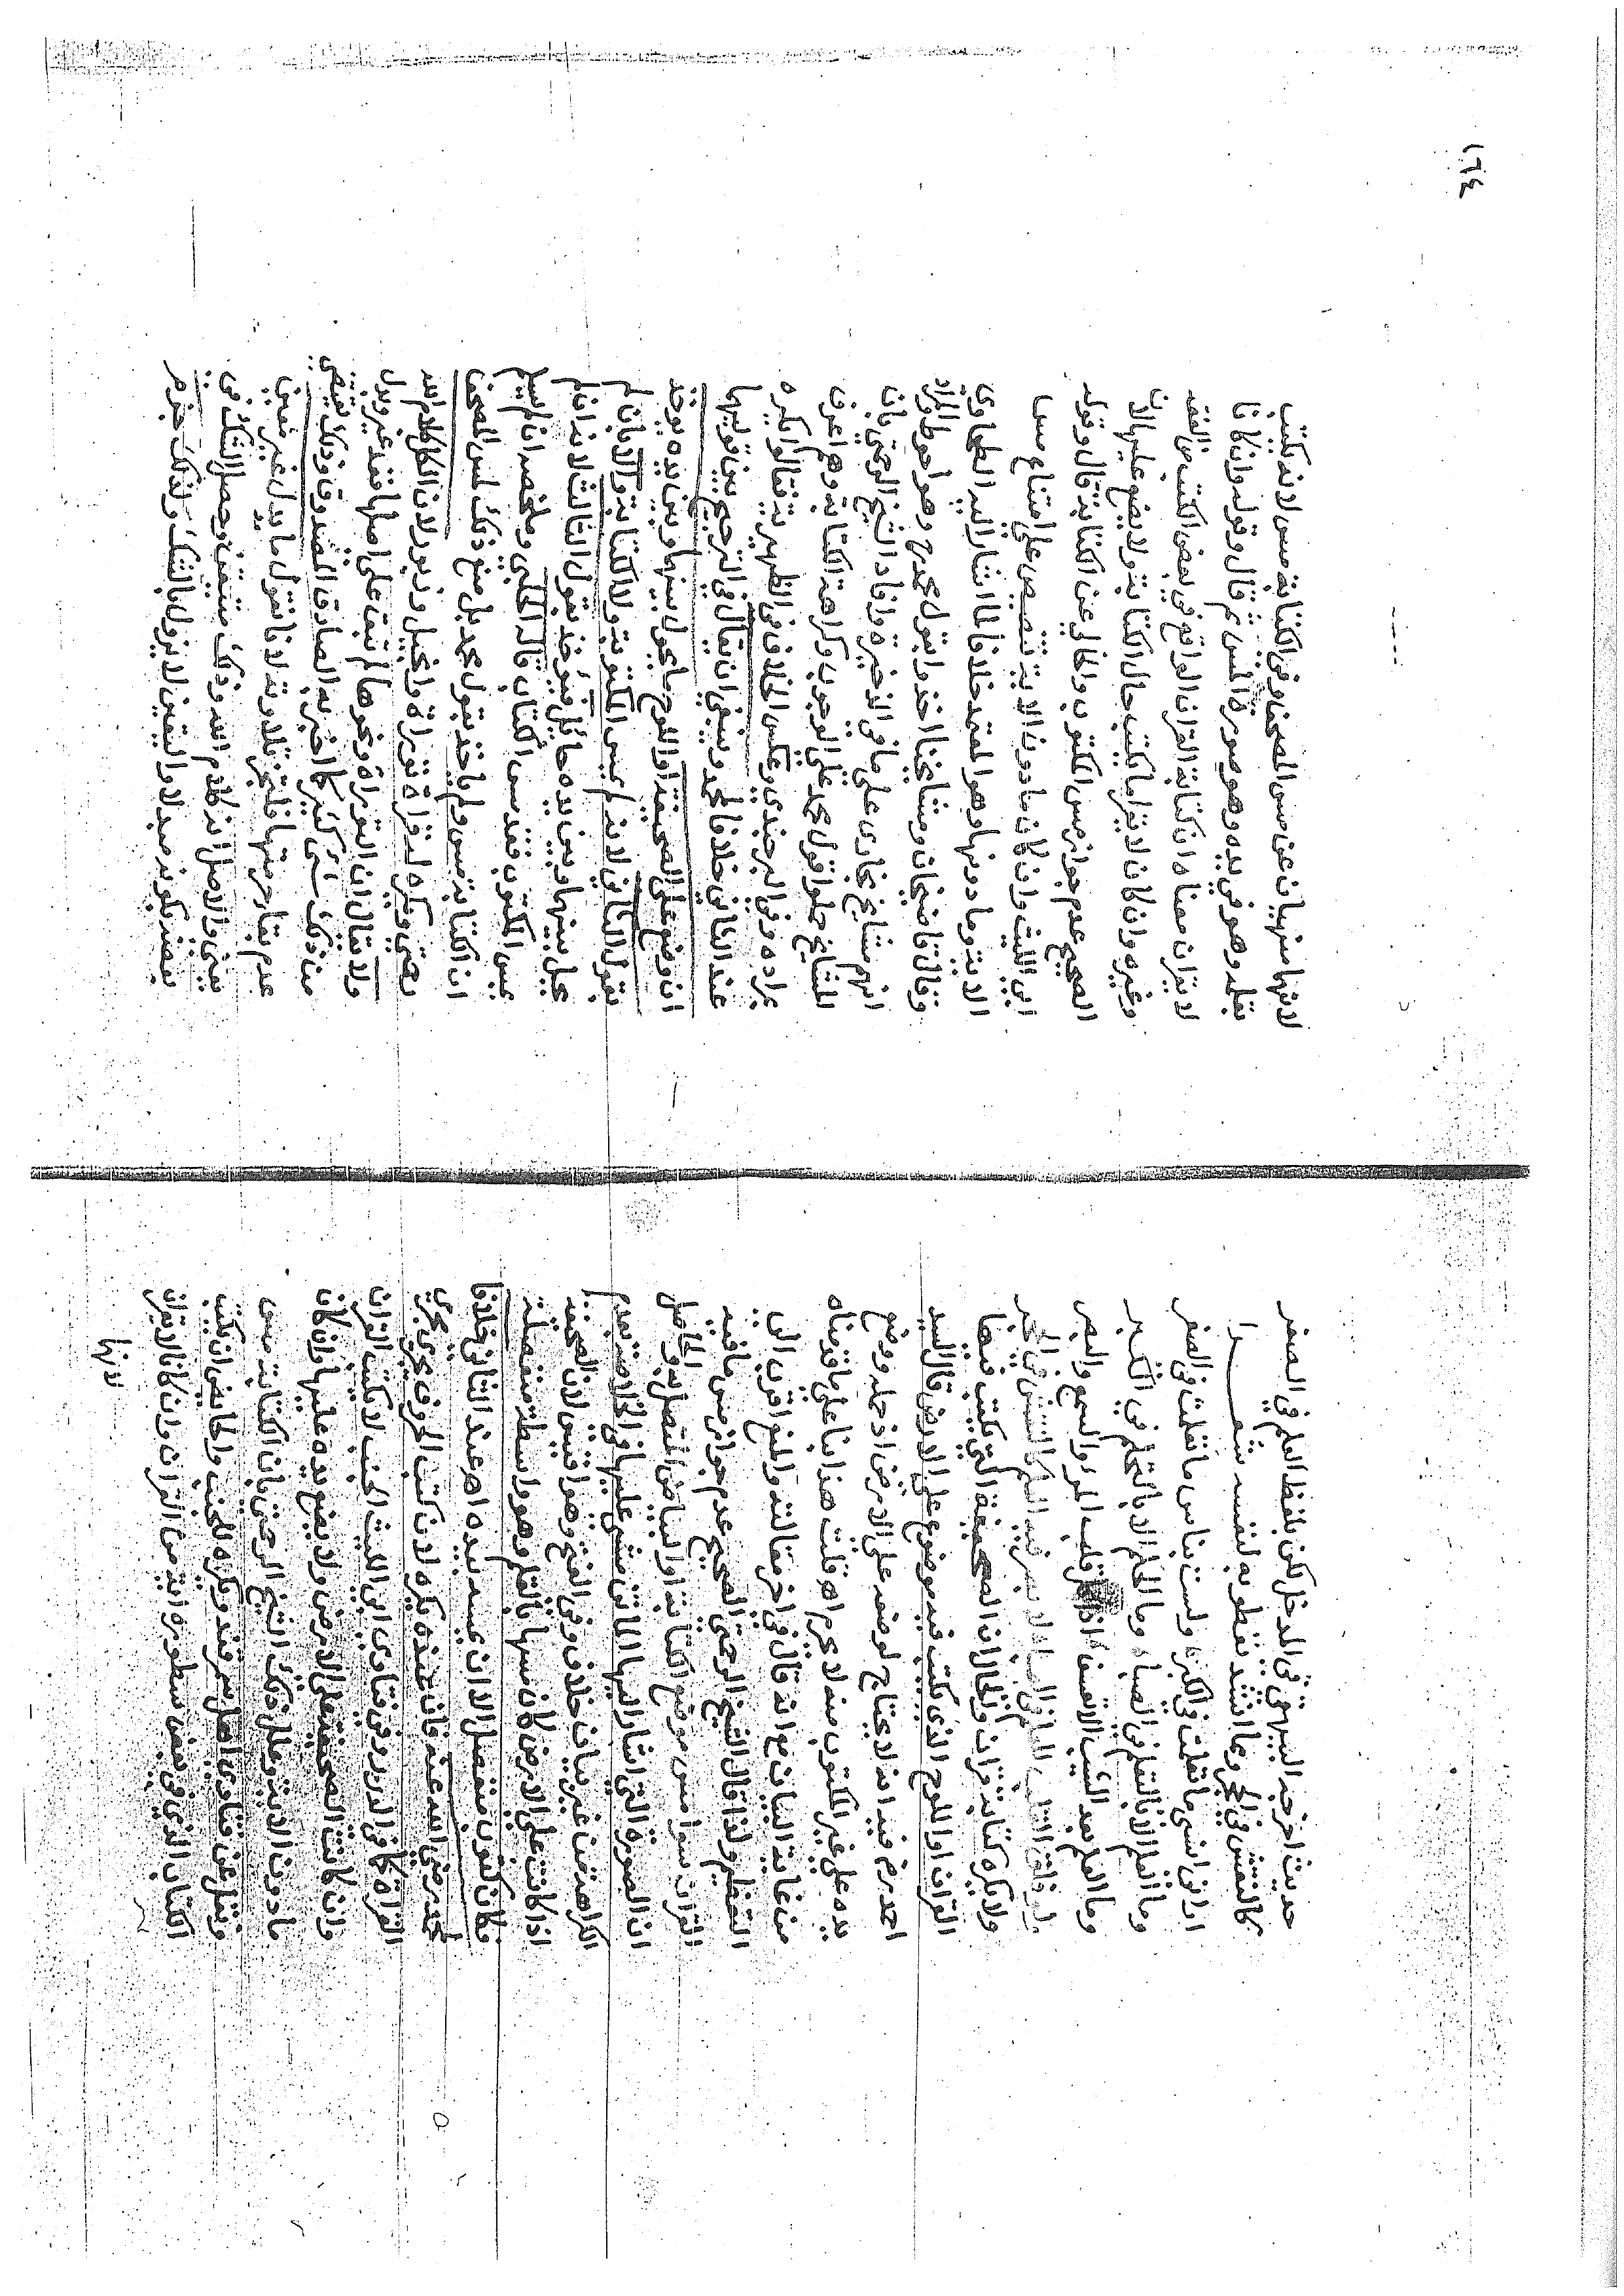 حديث اخرجه البيهقي في المدخل لكن بلفظ العلم في الصغر
كالنقش في الحجر وما انشد نفطويه لنفسه شعرا
اراني انسى ما تعلمت في الكبر ولست بناس ما تعلمت في الصغر
وما العلم الا بالتعلم في الصبا وما الحلم الا بالتحلم في الكبر
وما العلم بعد الشيب الا تعسف اذا قلب المرء والسمع والبصر
ولو فلق القلب المعلم في الصبا لابصر فيه العلم كالنقش في الحجر
ولا يكره كتابة قران والحال ان الصحيفة التي يكتب فيها
القران او اللوح الذي يكتب فيه موضوع على الارض قال السيد
احمد رح فيه انه لا يحتاج لوضعه على الارض اذ حمله ووضع
يده على غير المكتوب منه لا يحرم اه قلت هذا بنا على ما قدمناه
من غاية البيان مع انه قال في اخر مقالته والمنع اقرب الى
التعظيم ولذا قال الشيخ الرحمتي الصحيح عدم جواز مس ما فيه
القران سوا مس موضع الكتابة او البياض المتصل به والحاصل
ان الصورة التي اشار اليها الماتن مشى عليها في الخلاصة بعدم
الكراهة من غير بيان خلاف وفي الفتح وهو اقيس لان الصحيفة
اذا كانت على الارض كان مسها بالقلم وهو واسطة منفصلة
فكان كثوب منفصل الا ان يمسه بيده اه عند الثاني خلافا
لمحمد رضي الله عنه فان عنده يكره لان كتب الحروف يجري مجرى
القراة كما في الدرر وفي فتاوى ابي الليث الجنب لا يكتب القران
وان كانت الصحيفة على الارض ولا يضع يده عليها وان كان
ما دون الاية وعلل ذلك الشيخ الرحمتي بان الكتابة مس
ونقل عن فتاوى اهل سمرقند ويكره للجنب والحايض ان يكتب
الكتاب الذي في بعض سطوره اية من القران وان كانا لا يقران
لانها
١٦٤
لانها منهيان عن مس المصحف وفي الكتابة مس لانه يكتب
بقلمه وهو في يده وهو صورة المس ثم قال وقوله وان كانا
لا يقران معناه ان كتابة القران الواقع في بعض الكتب من الفقه
وغيره وان كان لا يقرا ما يكتب حال الكتابة ولا يضع عليها الان
الصحيح عدم جواز مس المكتوب والخالي عن الكتابة قال وقول
ابي الليث وان كان ما دون الاية تنصيص على امتناع مس
الاية وما دونها وهو المعتمد خلافا لما اشار اليه الطحاوي
وقال قاضيخان ومشايخنا اخذوا بقول محمد رح وهو احوط والمراد
انهم مشايخ بخارى على ما في الذخيرة وافاد الشيخ الرحمتي بان
المشايخ حملوا قول محمد على الوجوب وكراهة الكتابة وهم اعرف
بمراده وفي البرجندي وعكس الخلاف في الظهيرية فقالوا يكره
عند الثاني خلافا لمحمد وينبغي ان يقال في الترجيح بين قوليهما
ان وضع على الصحيفة او اللوح ما يحول بينها وبين يده يوخذ
بقول الثاني لانه لم يمس المكتوبة ولا الكتابة والا بان لم
يحل بينها وبين يده حائل فيوخذ بقول الثالث لانه ان لم
يمس المكتوب فقد مس الكتاب قاله الحلبي وملخصه انا لم نسلم
ان الكتابة مس ولم ياخذ بقول محمد بل منع ذلك لمس المصحف
بعض ويكره له قراة توراة وانجيل وزبور لان الكل كلام الله
ولا يقال ان التوراة ونحوها لم تبق على اصلها فقد غير وبدل
من ذلك شي كثير كما اخبر به الصادق المصدوق وذلك يقتضي
عدم بقا حرمتها فلتجز تلاوته لانا نقول ما بدل غير معين
يعني والاصل انه كلام الله وذلك متيقن وحصل الشك في
بعضه بكونه مبدلا واليقين لا يزول بالشك ولذلك جزم